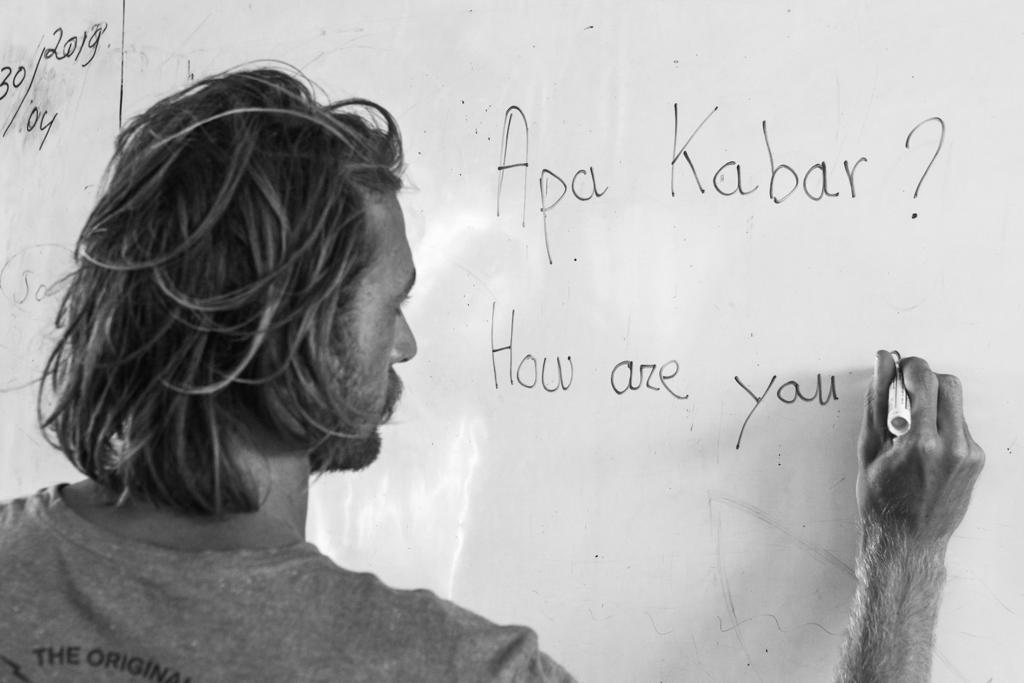 30/2019
/04
Apa Kabar ?
How are you
THE ORIGINAL